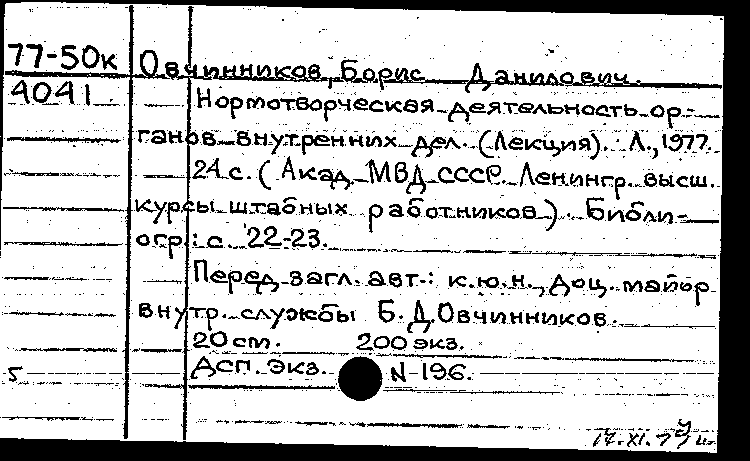 77-50к Овчинников, Борис Данилович.
4041 Нормотворческая деятельность ор-
ганов внутренних дел. (Лекция). Л., 1977.
24 с. (Акад. МВД СССР. Ленингр. высш.
курсы штабных работников). Библи-
огр.: с. 22-23.
Перед загл. авт.: к.ю.н., доц. майор
внутр. службы Б.Д. Овчинников.
20 см. 200 экз.
5 Дсп. экз. N 196.
17.XI.77